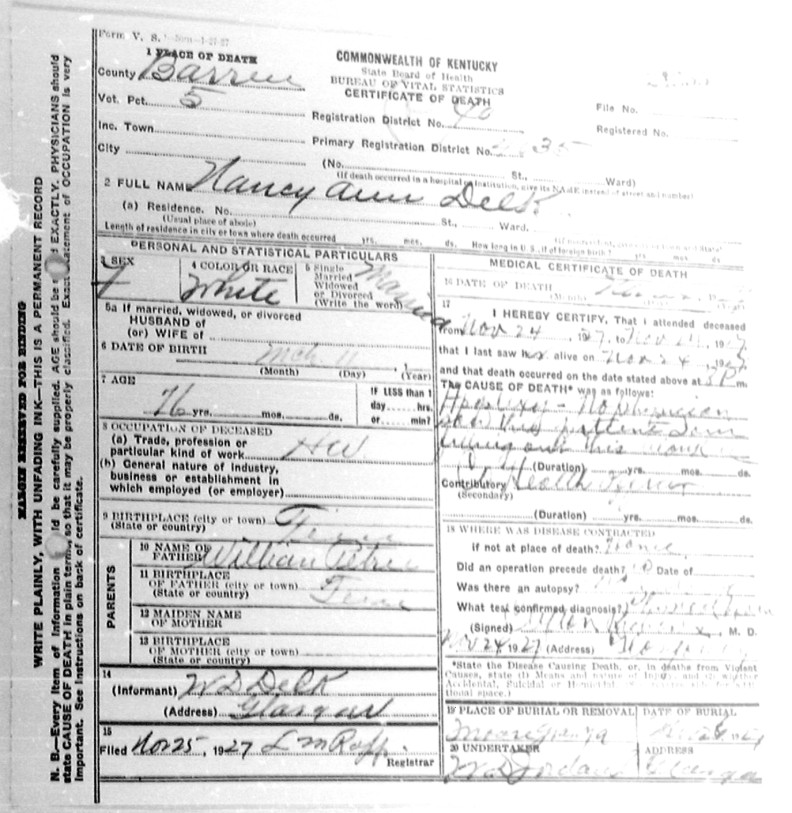 Form V. S.
1 PLACE OF DEATH
County Barren
Vot. Pct. 5
Inc. Town
City
COMMONWEALTH OF KENTUCKY
State Board of Health
BUREAU OF VITAL STATISTICS
CERTIFICATE OF DEATH
Registration District No. 40
Primary Registration District No. 35
File No.
Registered No.
(No. St., Ward)
(If death occurred in a hospital or institution, give its NAME instead of street and number)
2 FULL NAME Nancy Ann Delk
(a) Residence. No. St., Ward.
(Usual place of abode)
Length of residence in city or town where death occurred yrs. mos. ds. How long in U. S., if of foreign birth? yrs. mos. ds.
PERSONAL AND STATISTICAL PARTICULARS
3 SEX
F
4 COLOR OR RACE
White
5 Single
Married
Widowed
or Divorced
(Write the word)
Married
5a If married, widowed, or divorced
HUSBAND of
(or) WIFE of
6 DATE OF BIRTH Mch 11
(Month) (Day) (Year)
7 AGE
76 yrs. mos. ds.
IF LESS than 1
day hrs.
or min?
8 OCCUPATION OF DECEASED
(a) Trade, profession or
particular kind of work HW
(b) General nature of industry,
business or establishment in
which employed (or employer)
9 BIRTHPLACE (city or town) Tenn
(State or country)
PARENTS
10 NAME OF
FATHER William
11 BIRTHPLACE
OF FATHER (city or town)
(State or country) Tenn
12 MAIDEN NAME
OF MOTHER
13 BIRTHPLACE
OF MOTHER (city or town)
(State or country)
14
(Informant) W D Delk
(Address) Glasgow
15
Filed Nov 25, 1927 L M
Registrar
MEDICAL CERTIFICATE OF DEATH
16 DATE OF DEATH
17
I HEREBY CERTIFY, That I attended deceased
from Nov 24, 1927 to Nov 1927
that I last saw her alive on Nov 24, 192
and that death occurred on the date stated above at m.
The CAUSE OF DEATH* was as follows:
Apoplexy - No physician
this patient
out this
(Duration) yrs. mos. ds.
Contributory Health
(Secondary)
(Duration) yrs. mos. ds.
18 WHERE WAS DISEASE CONTRACTED
if not at place of death? Home
Did an operation precede death? No Date of
Was there an autopsy?
What test confirmed diagnosis?
(Signed) M. D.
Nov 24 1927 (Address)
*State the Disease Causing Death, or, in deaths from Violent
Causes, state (1) Means and nature of Injury, and (2) whether
Accidental, Suicidal or Homicidal
tional space.)
19 PLACE OF BURIAL OR REMOVAL
DATE OF BURIAL
20 UNDERTAKER
ADDRESS
W D Jordan Glasgow
MARGIN RESERVED FOR BINDING
WRITE PLAINLY, WITH UNFADING INK—THIS IS A PERMANENT RECORD
N. B.—Every item of Information should be carefully supplied. AGE should be EXACTLY. PHYSICIANS should
state CAUSE OF DEATH in plain terms, so that it may be properly classified. Exact statement of OCCUPATION is very
important. See instructions on back of certificate.